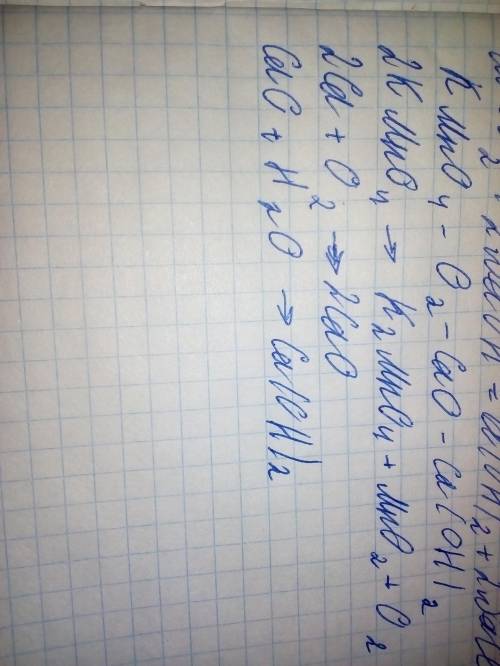 2NaOH = (OH)2 +
KMnO4 - O2 - CaO - Ca(OH)2
2KMnO4 → K2MnO4 + MnO2 + O2
2Ca + O2 → 2CaO
CaO + H2O → Ca(OH)2